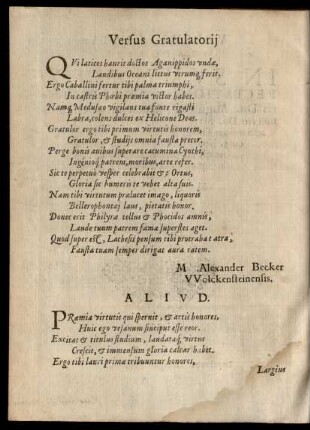 Versus Gratulatorij
QVi latices hauris doctos Aganippidos undæ,
Landibus Oceani littus utrumq; ferit.
Ergo Caballini fertur tibi palma triumphi,
In castris Phœbi præmia victor habes.
Namq; Medusæo vigilans tua fonte rigasti
Labra, colens dulces ex Helicone Deas.
Gratulor ergo tibi primum virtutis honorem,
Gratulor, & studijs omnia fausta precor.
Perge bonis avibus superare cacumina Cynthi,
Ingenioq; patrem, moribus, arte refer.
Sic te perpetuò vesper celebrabit & Ortus,
Gloria sic humeris te vehet alta suis.
Nam tibi virtutum prælucet imago, liquoris
Bellerophontæi laus, pietatis honor.
Donec erit Philyræ tellus & Phocidos amnis,
Laude tuum patrem fama superstes aget.
Quod super est, Lachesis pensum tibi protrahat atra,
Fausta tuam semper dirigat aura ratem.
M Alexander Becker
VVolckensteinensis.
ALIVD.
PRæmia virtutis qui spernit, & artis honores,
Huic ego vesanum sinciput esse reor.
Excitat & titulus studium, laudataq; virtus
Crescit, & immensum gloria calcar habet.
Ergo tibi lauri prima tribuuntur honores,
Largius